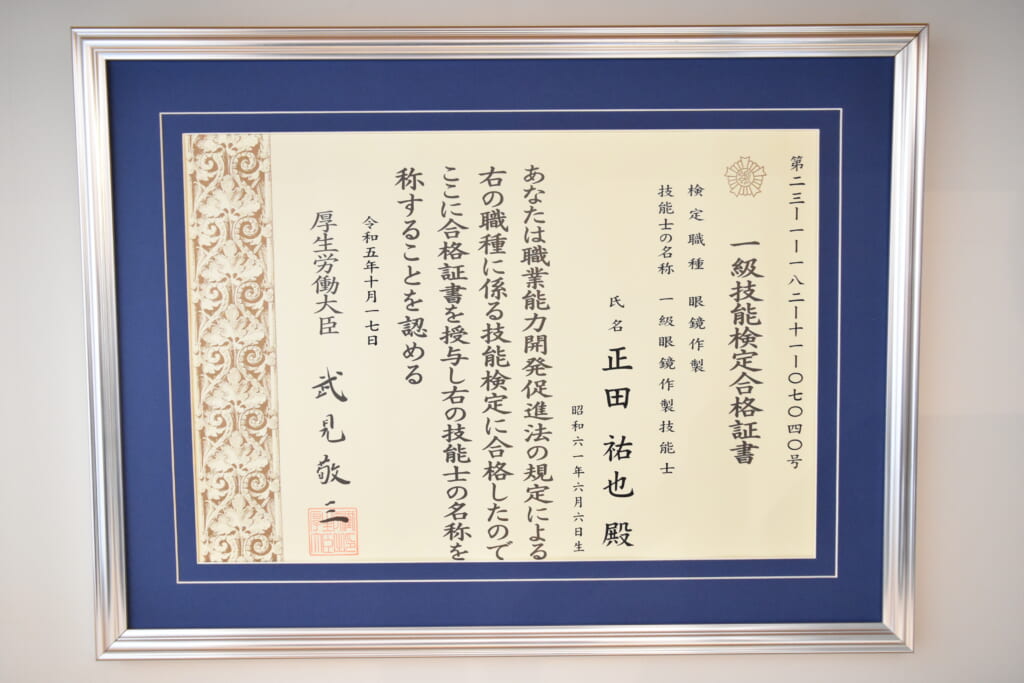 第二三ー一ー一八二ー十一ー〇七〇四〇号
一級技能検定合格証書
検定職種 眼鏡作製
技能士の名称 一級眼鏡作製技能士
氏名 正田 祐也 殿
昭和六一年六月六日生
あなたは職業能力開発促進法の規定による
右の職種に係る技能検定に合格したので
ここに合格証書を授与し右の技能士の名称を
称することを認める
令和五年十月一七日
厚生労働大臣 武見敬三